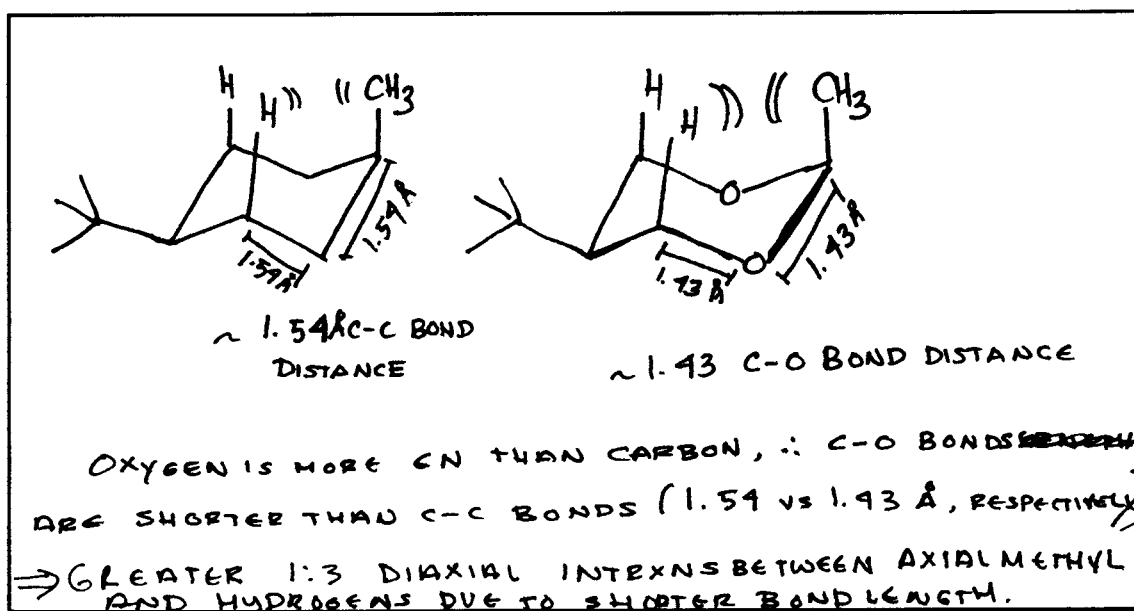 H H CH3 H H CH3
O O
1.54Å 1.54Å 1.43Å 1.43Å
~ 1.54Å C-C BOND
DISTANCE
~ 1.43 C-O BOND DISTANCE
OXYGEN IS MORE EN THAN CARBON, ∴ C-O BONDS
ARE SHORTER THAN C-C BONDS (1.54 vs 1.43 Å, RESPECTIVELY)
⇒ GREATER 1:3 DIAXIAL INTRXNS BETWEEN AXIAL METHYL
AND HYDROGENS DUE TO SHORTER BOND LENGTH.